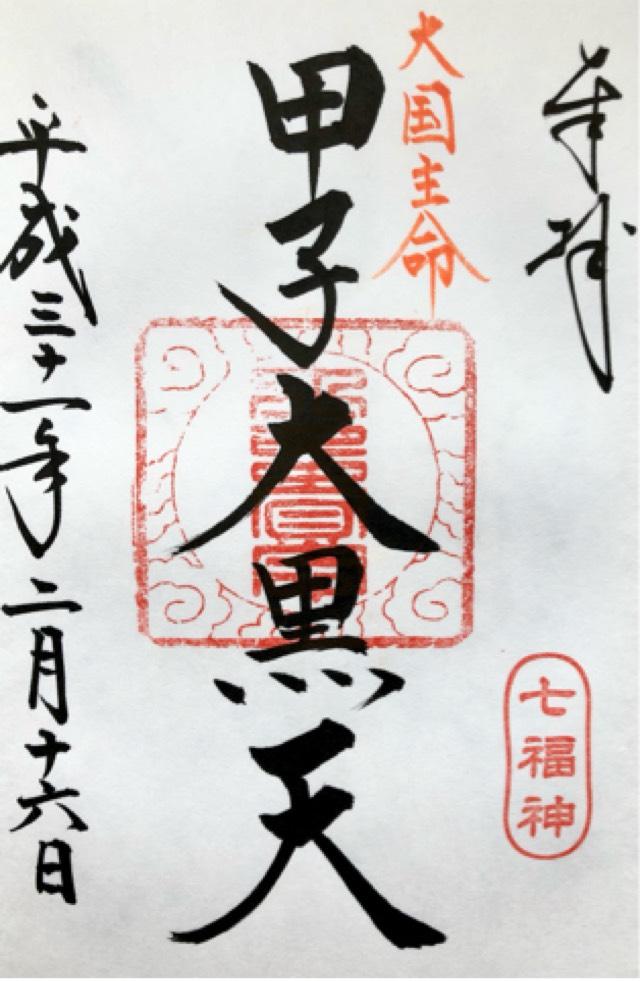 奉拝
七福神
大国主命
甲子大黒天
平成三十一年二月十六日